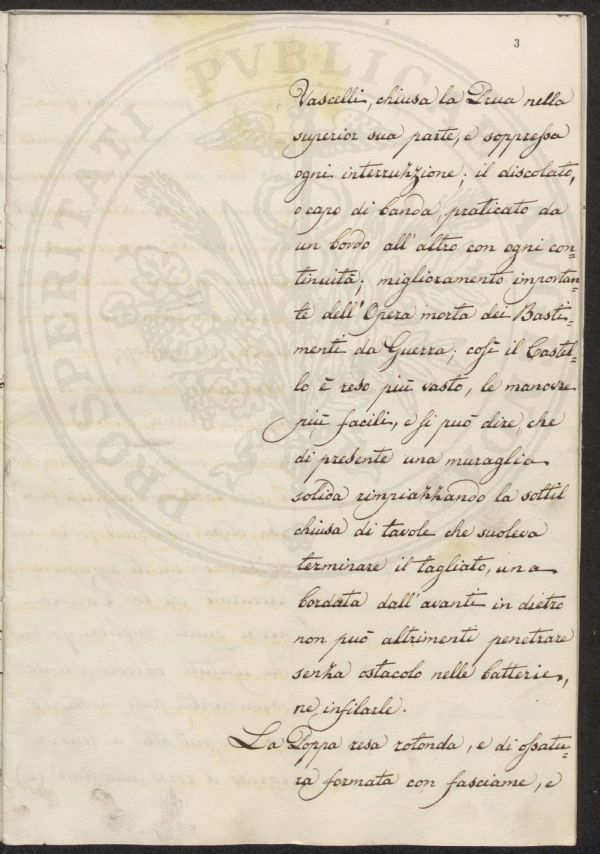 3
Vascelli, chiusa la Prua nella
superior sua parte, e soppressa
ogni interruzzione; il discolato,
o capo di banda, praticato da
un bordo all'altro con ogni con=
tinuità; miglioramento importan=
te dell'Opera morta dei Basti=
menti da Guerra; così il Castel=
lo è reso più vasto, le manovre
più facili, e si può dire che
di presente una muraglia
solida rimpiazzando la sottil
chiusa di tavole che suoleva
terminare il tagliato, una
bordata dall'avanti in dietro
non può altrimenti penetrare
senza ostacolo nelle batterie,
ne infilarle.
La Poppa resa rotonda, e di ossatu=
ra formata con fasciame, e
PROSPERITATI PVBLICAE